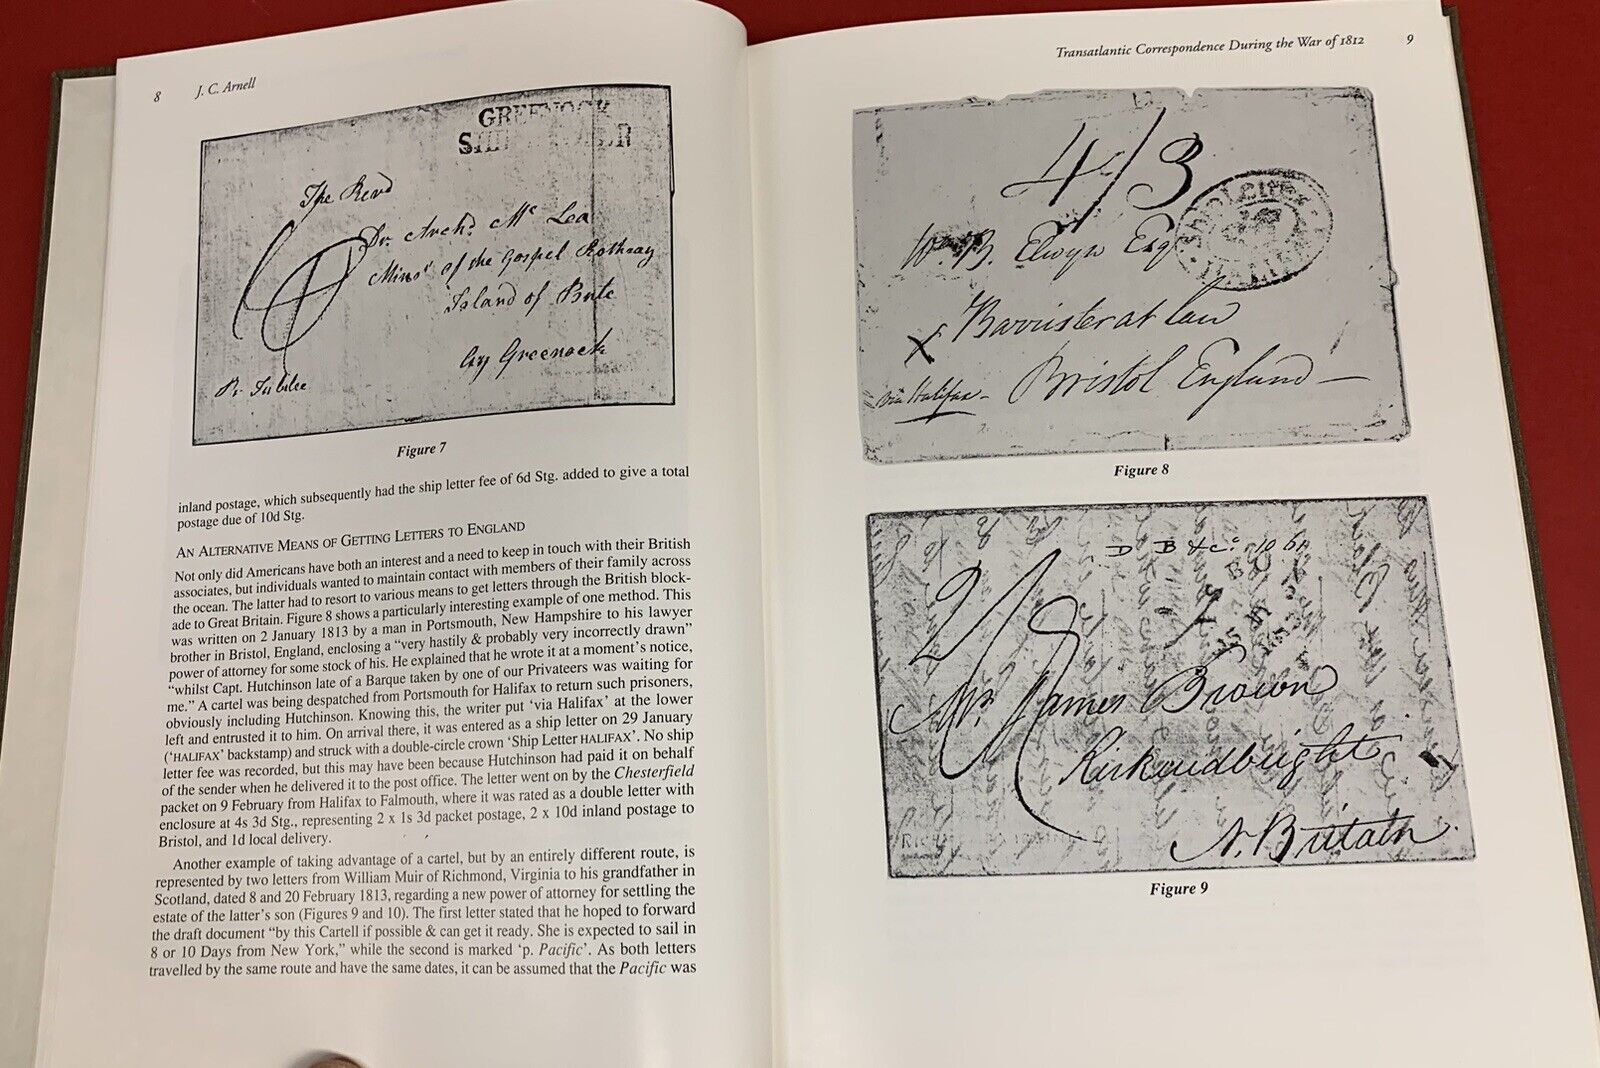 8 J. C. Arnell
GREENOCK
SHIP LETTER
The Revd
Dr. Archd. Mc Lea
Minr of the Gospel Rothsay
Island of Bute
By Greenock
Pr. Jubilee
Figure 7
inland postage, which subsequently had the ship letter fee of 6d Stg. added to give a total
postage due of 10d Stg.
AN ALTERNATIVE MEANS OF GETTING LETTERS TO ENGLAND
Not only did Americans have both an interest and a need to keep in touch with their British
associates, but individuals wanted to maintain contact with members of their family across
the ocean. The latter had to resort to various means to get letters through the British block-
ade to Great Britain. Figure 8 shows a particularly interesting example of one method. This
was written on 2 January 1813 by a man in Portsmouth, New Hampshire to his lawyer
brother in Bristol, England, enclosing a “very hastily & probably very incorrectly drawn”
power of attorney for some stock of his. He explained that he wrote it at a moment’s notice,
“whilst Capt. Hutchinson late of a Barque taken by one of our Privateers was waiting for
me.” A cartel was being despatched from Portsmouth for Halifax to return such prisoners,
obviously including Hutchinson. Knowing this, the writer put ‘via Halifax’ at the lower
left and entrusted it to him. On arrival there, it was entered as a ship letter on 29 January
(‘HALIFAX’ backstamp) and struck with a double-circle crown ‘Ship Letter HALIFAX’. No ship
letter fee was recorded, but this may have been because Hutchinson had paid it on behalf
of the sender when he delivered it to the post office. The letter went on by the Chesterfield
packet on 9 February from Halifax to Falmouth, where it was rated as a double letter with
enclosure at 4s 3d Stg., representing 2 x 1s 3d packet postage, 2 x 10d inland postage to
Bristol, and 1d local delivery.
Another example of taking advantage of a cartel, but by an entirely different route, is
represented by two letters from William Muir of Richmond, Virginia to his grandfather in
Scotland, dated 8 and 20 February 1813, regarding a new power of attorney for settling the
estate of the latter’s son (Figures 9 and 10). The first letter stated that he hoped to forward
the draft document “by this Cartell if possible & can get it ready. She is expected to sail in
8 or 10 Days from New York,” while the second is marked ‘p. Pacific’. As both letters
travelled by the same route and have the same dates, it can be assumed that the Pacific was
Transatlantic Correspondence During the War of 1812 9
4/3
Wm. B. Elwyn Esq
Barrister at Law
X
Bristol England
via Halifax
Figure 8
D B & Co. 10 6
2/8
Mr. James Brown
Kirkcudbright
N. Britain
Figure 9